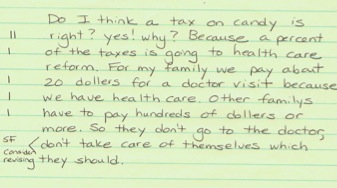 Do I think a tax on candy is
11 right? yes! why? Because a percent
1 of the taxes is going to health care
reform. For my family we pay about
1 20 dollers for a doctor visit because
1 we have health care. Other familys
1 have to pay hundreds of dollers or
more. So they don't go to the doctor,
SF don't take care of themselves which
consider revising they should.